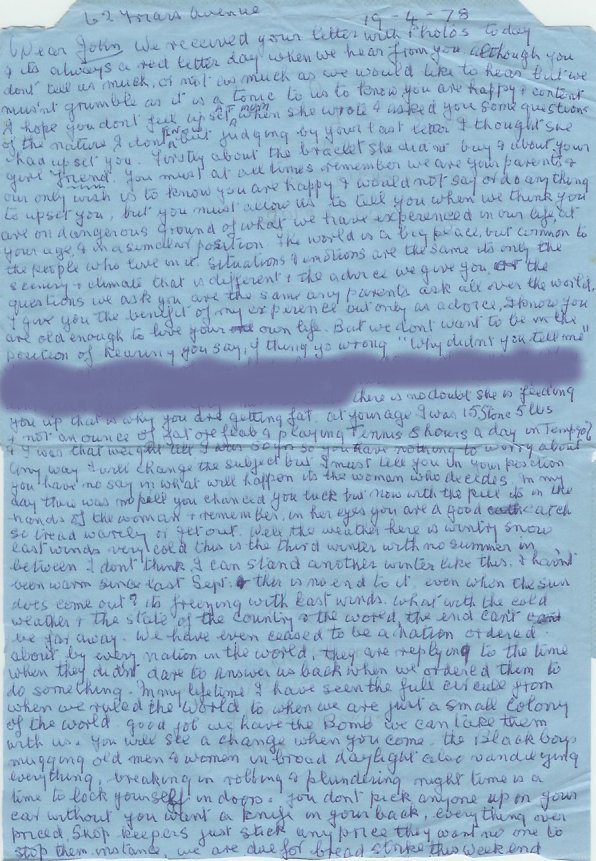 62 Friars avenue 19-4-78
Dear John We received your letter with Photos today
& its always a red letter day when we hear from you although you
dont tell us much, or not as much as we would like to hear but we
musn't grumble as it is a tonic to us to know you are happy & content
I hope you dont feel upset mum when she wrote & asked you some questions
of the nature I dont judging by your last letter I thought she
had upset you. Firstly about the braclet she didnt buy & about your
girl friend. You must at all times remember we are your parents &
our only wish is to know you are happy & would not say or do anything
to upset you, but you must allow us to tell you when we think you
are on dangerous ground of what we have experienced in our life, at
your age, & in a similar position. The world is a big place, but common to
the people who live on it. Situations & emotions are the same its only the
scenery & climate that is different & the advice we give you, the
questions we ask you are the same any parents ask all over the world,
I give you the benefit of my experience but only as advice, I know you
are old enough to live your own life. But we dont want to be in the
position of hearing you say, if things go wrong "Why didn't you tell me"
there is no doubt she is feeding
you up that is why you are getting fat, at your age I was 15 stone 5 lbs
& not an ounce of fat playing Tennis 8 hours a day in Temp 90
& I was that weight till I was so you have nothing to worry about
any way I will change the subject but I must tell you in your position
you have no say in what will happen its the woman who decides, in my
day there was no pill you chanced you luck but now with the pill its in the
hands of the woman & remember, in her eyes you are a good catch
so tread warily or get out. Well the weather here is wintry snow
East winds very cold this is the third winter with no summer in
between I dont think I can stand another winter like this. I havnt
been warm since last Sept. & ther is no end to it, even when the sun
does come out & its freezing with East winds. What with the cold
weather & the state of the country & the world, the end can't
be far away. We have even ceased to be a nation ordered
about by every nation in the world, they are replying to the time
when they didnt dare to answer us back when we ordered them to
do something. In my lifetime I have seen the full circule from
when we ruled the World to when we are just a small colony
of the world good job we have the Bomb we can take them
with us. You will see a change when you come, the Black boys
mugging old men & women in broad daylight also vandlizing
everything, breaking in robbing & plundering night time is a
time to lock yourself in doors. You dont pick anyone up in your
car without you want a knife in your back, everything over
priced, Shop keepers just stick any price they want no one to
stop them instance, we are due for bread strike this weekend